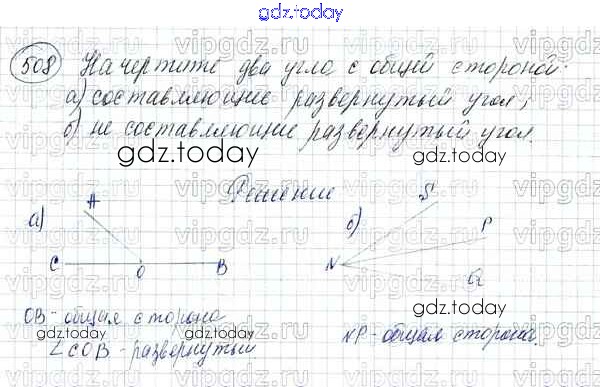 gdz.today
508 Начертите два угла с общей стороной:
а) составляющие развернутый угол;
б) не составляющие развернутый угол.
gdz.today gdz.today
Решение
а) A C O B
б) S P N Q
gdz.today gdz.today
OB - общая сторона
∠COB - развернутый
NP - общая сторона.
gdz.today gdz.today
vipgdz.ru